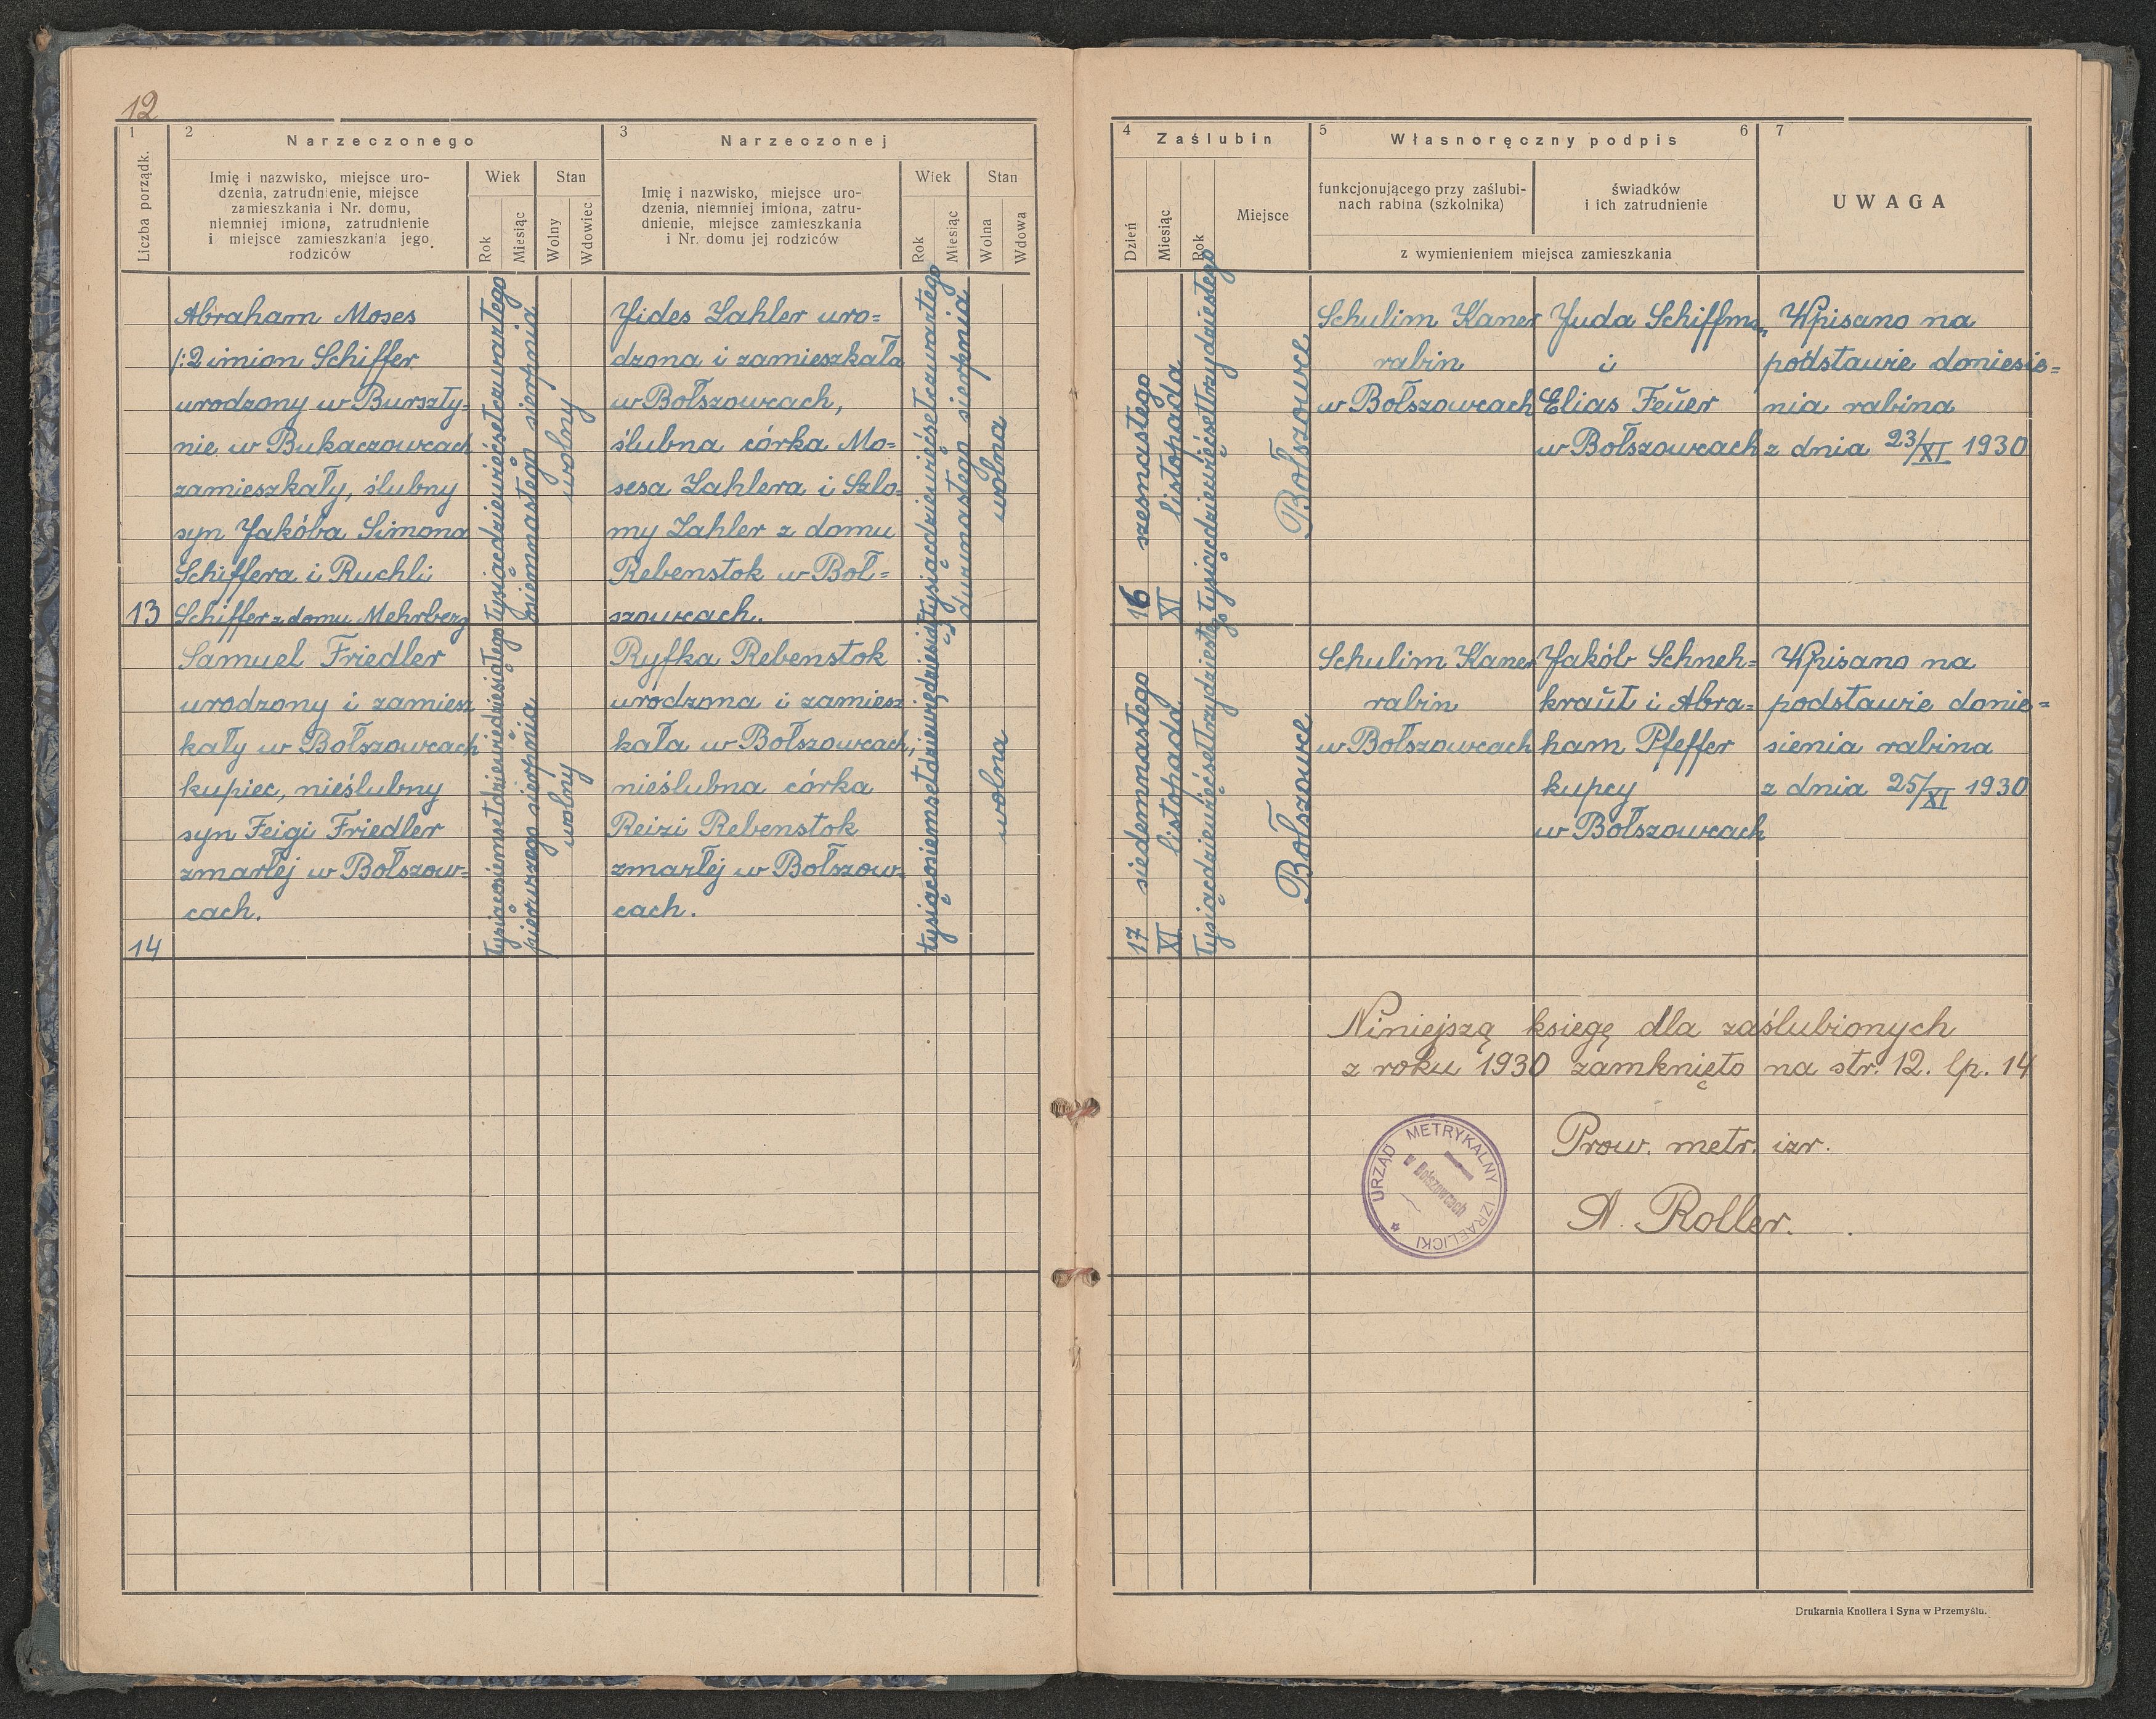 12
1
2
Narzeczonego
3
Narzeczonej
Liczba porządk.
Imię i nazwisko, miejsce uro-
dzenia, zatrudnienie, miejsce
zamieszkania i Nr. domu,
niemniej imiona, zatrudnienie
i miejsce zamieszkania jego
rodziców
Wiek
Rok
Miesiąc
Stan
Wolny
Wdowiec
Imię i nazwisko, miejsce uro-
dzenia, niemniej imiona, zatru-
dnienie, miejsce zamieszkania
i Nr. domu jej rodziców
Wiek
Rok
Miesiąc
Stan
Wolna
Wdowa
13
Abraham Moses
/:2 imion Schiffer
urodzony w Burszty-
nie w Bukaczowcach
zamieszkały, ślubny
syn Jakóba Simona
Schiffera i Ruchli
Schiffer z domu Mehrberg
tysiącdziewięćsetczwartego
osiemnastego sierpnia
wolny
Jides Zahler uro=
dzona i zamieszkała
w Bołszowcach,
ślubna córka Mo=
sesa Zahlera i Szlo=
my Zahler z domu
Rebenstok w Boł=
szowcach.
tysiącdziewięćsetczwartego
dwunastego sierpnia
wolna
14
Samuel Friedler
urodzony i zamiesz
kały w Bołszowcach
kupiec, nieślubny
syn Feigi Friedler
zmarłej w Bołszow=
cach.
pierwszego sierpnia
wolny
Ryfka Rebenstok
urodzona i zamiesz
kała w Bołszowcach,
nieślubna córka
Reizi Rebenstok
zmarłej w Bołszow=
cach.
wolna
4
Zaślubin
5
Własnoręczny podpis
6
7
Dzień
Miesiąc
Rok
Miejsce
funkcjonującego przy zaślubi-
nach rabina (szkolnika)
świadków
i ich zatrudnienie
z wymienieniem miejsca zamieszkania
UWAGA
16 szesnastego
XI listopada
tysiącdziewięćsettrzydziestego
Bołszowce
Schulim Kaner
rabin
w Bołszowcach
Juda Schiffman
i
Elias Feuer
w Bołszowcach
Wpisano na
podstawie doniesie=
nia rabina
z dnia 23/XI 1930
17 siedemnastego
XI listopada
tysiącdziewięćsettrzydziestego
Bołszowce
Schulim Kaner
rabin
w Bołszowcach
Jakób Schneh=
kraut i Abra=
ham Pfeffer
kupcy
w Bołszowcach
Wpisano na
podstawie donie=
sienia rabina
z dnia 25/XI 1930
Niniejszą księgę dla zaślubionych
z roku 1930 zamknięto na str. 12. lp. 14
URZĄD METRYKALNY IZRAELICKI
w Bołszowcach
Prow. metr. izr.
A. Roller.
Drukarnia Knollera i Syna w Przemyślu.